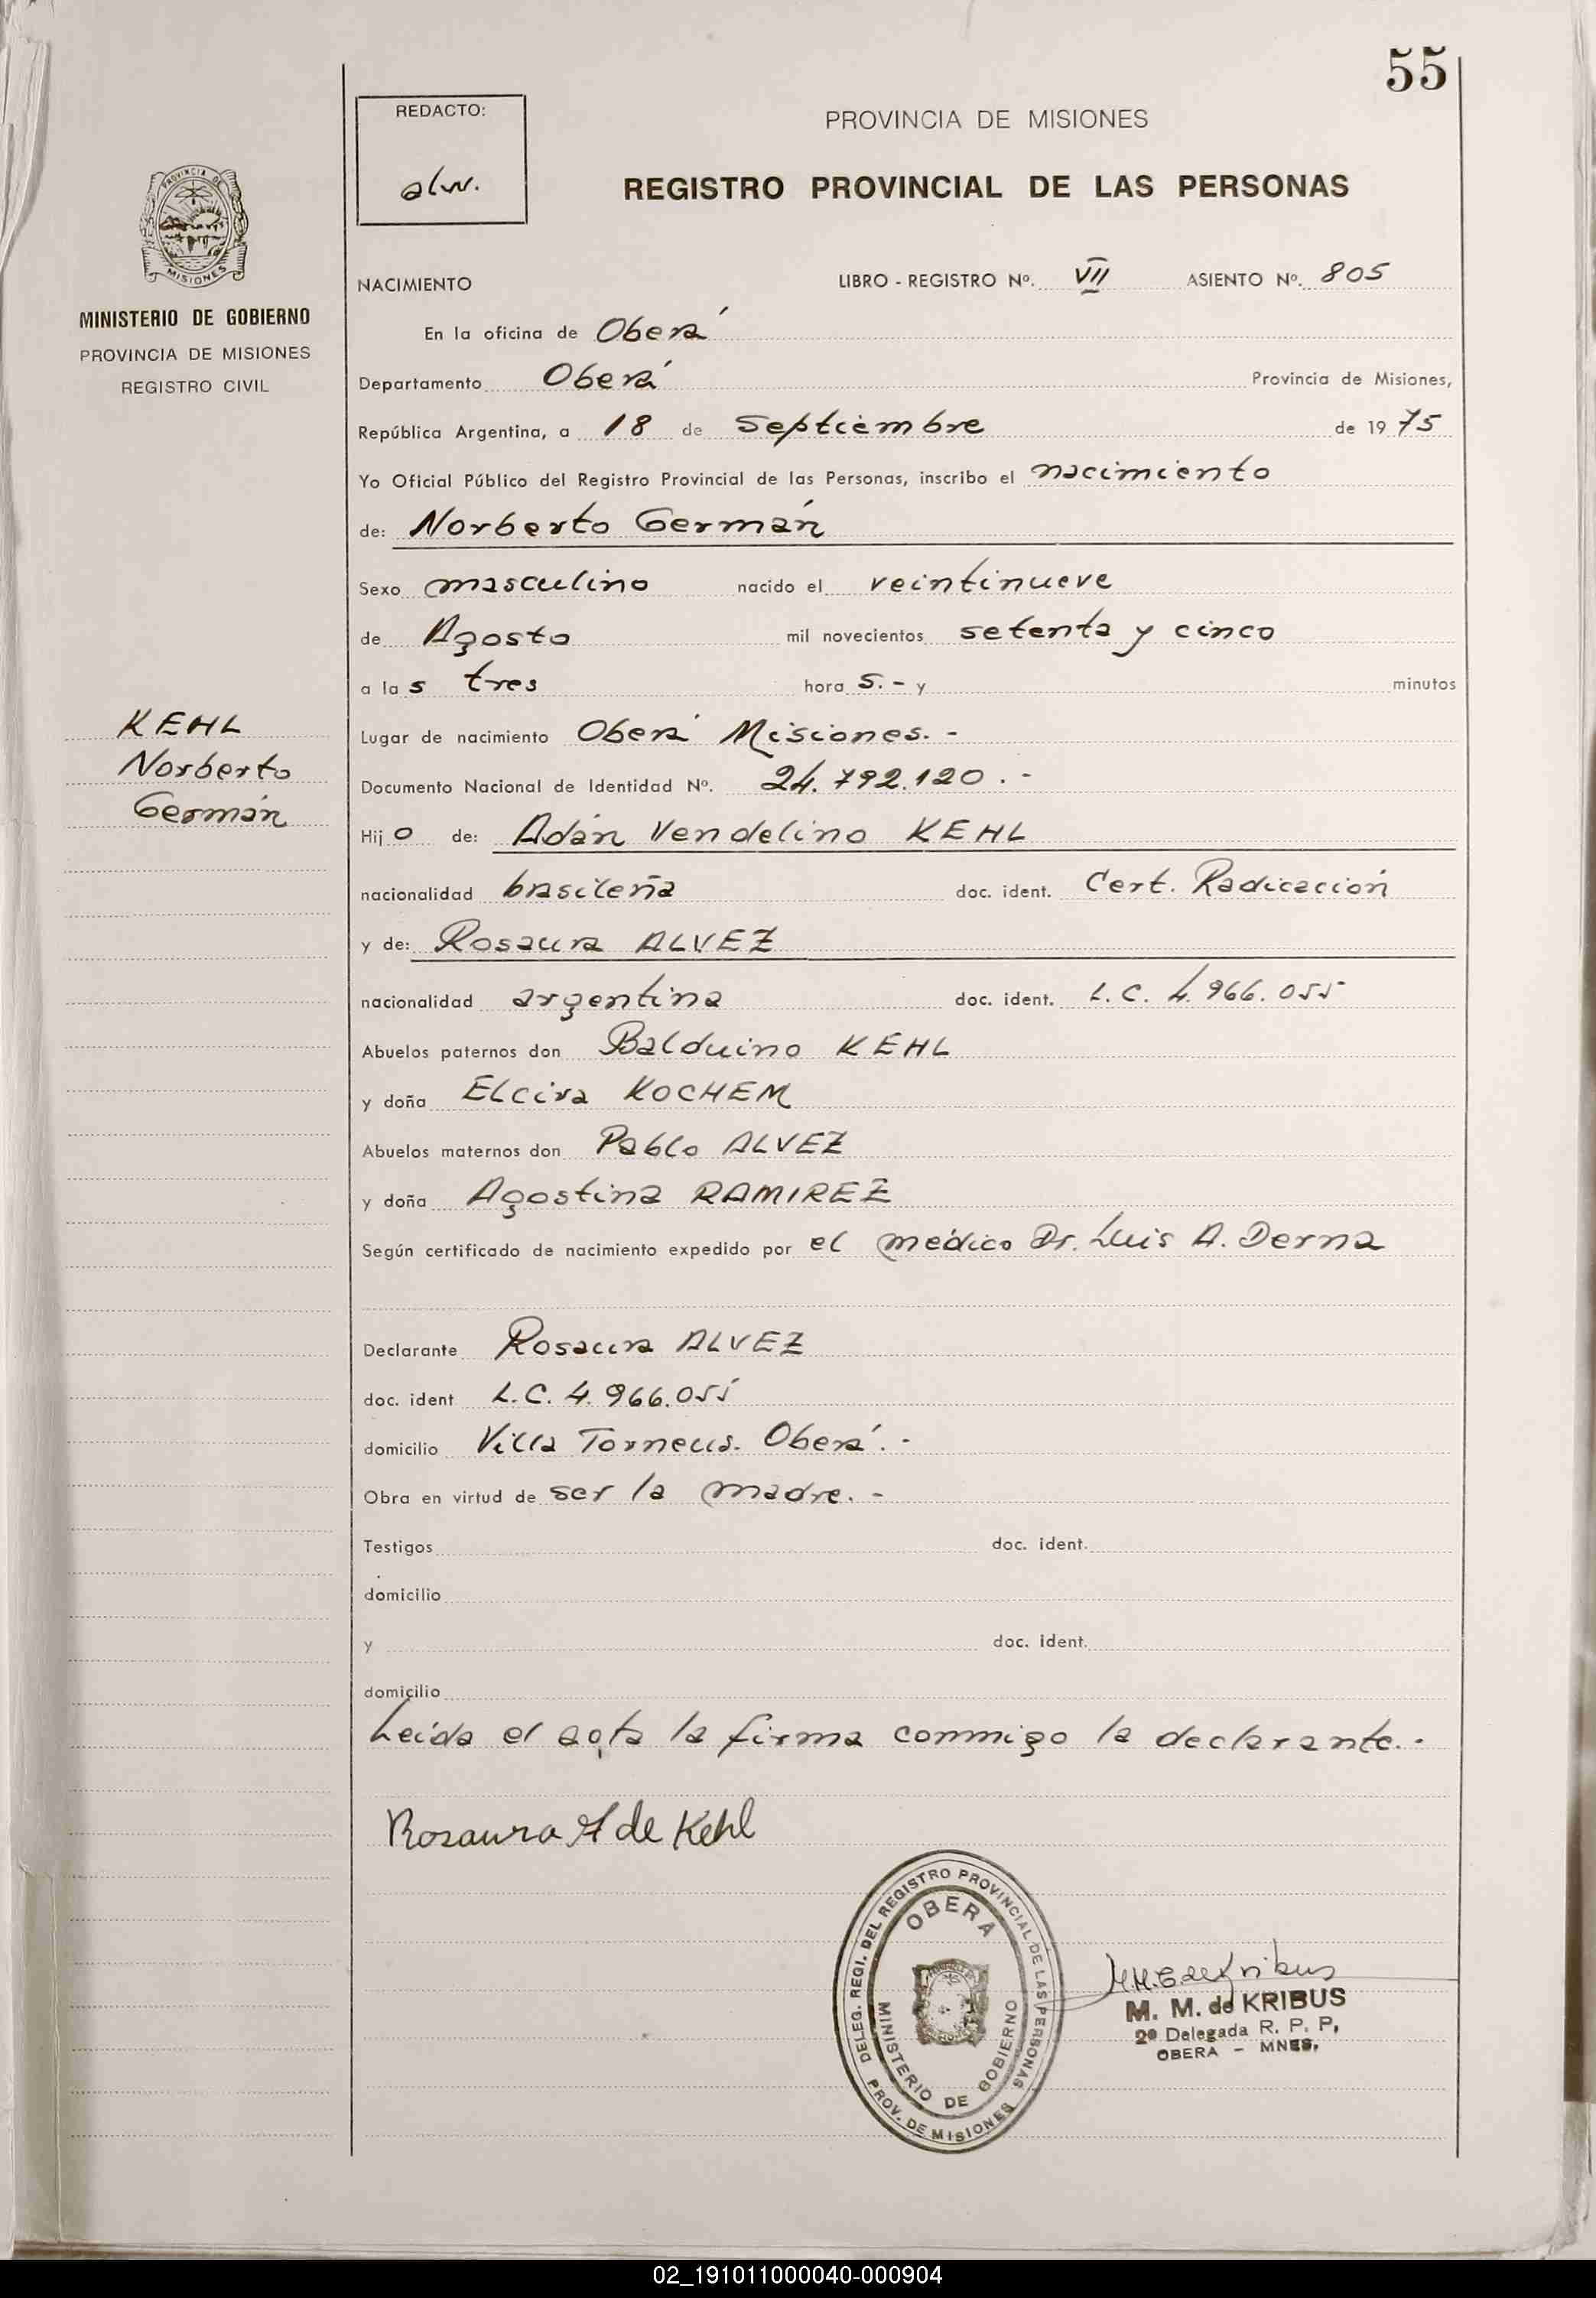 55
REDACTO:
alw.
PROVINCIA DE MISIONES
REGISTRO PROVINCIAL DE LAS PERSONAS
PROVINCIA DE
MISIONES
MINISTERIO DE GOBIERNO
PROVINCIA DE MISIONES
REGISTRO CIVIL
NACIMIENTO LIBRO - REGISTRO Nº. VII ASIENTO Nº. 805
En la oficina de Oberá
Departamento Oberá Provincia de Misiones,
República Argentina, a 18 de Septiembre de 1975
Yo Oficial Público del Registro Provincial de las Personas, inscribo el nacimiento
de: Norberto Germán
Sexo masculino nacido el veintinueve
de Agosto mil novecientos setenta y cinco
a las tres hora s.- y minutos
KEHL
Norberto
Germán
Lugar de nacimiento Oberá Misiones.-
Documento Nacional de Identidad Nº. 24.792.120.-
Hijo de: Adán Vendelino KEHL
nacionalidad brasileña doc. ident. Cert. Radicación
y de: Rosaura ALVEZ
nacionalidad argentina doc. ident. L.C. 4.966.055
Abuelos paternos don Balduino KEHL
y doña Elcira KOCHEM
Abuelos maternos don Pablo ALVEZ
y doña Agostina RAMIREZ
Según certificado de nacimiento expedido por el médico Dr. Luis A. Derna
Declarante Rosaura ALVEZ
doc. ident L.C. 4.966.055
domicilio Villa Torneus. Oberá.-
Obra en virtud de ser la madre.-
Testigos doc. ident.
domicilio
y doc. ident.
domicilio
Leída el acta la firma conmigo la declarante.-
Rosaura A de Kehl
DELEG. REGI. DEL REGISTRO PROVINCIAL DE LAS PERSONAS
PROV. DE MISIONES
OBERA
MINISTERIO DE GOBIERNO
M. M. de KRIBUS
2ª Delegada R. P. P,
OBERA - MNES,
02_191011000040-000904